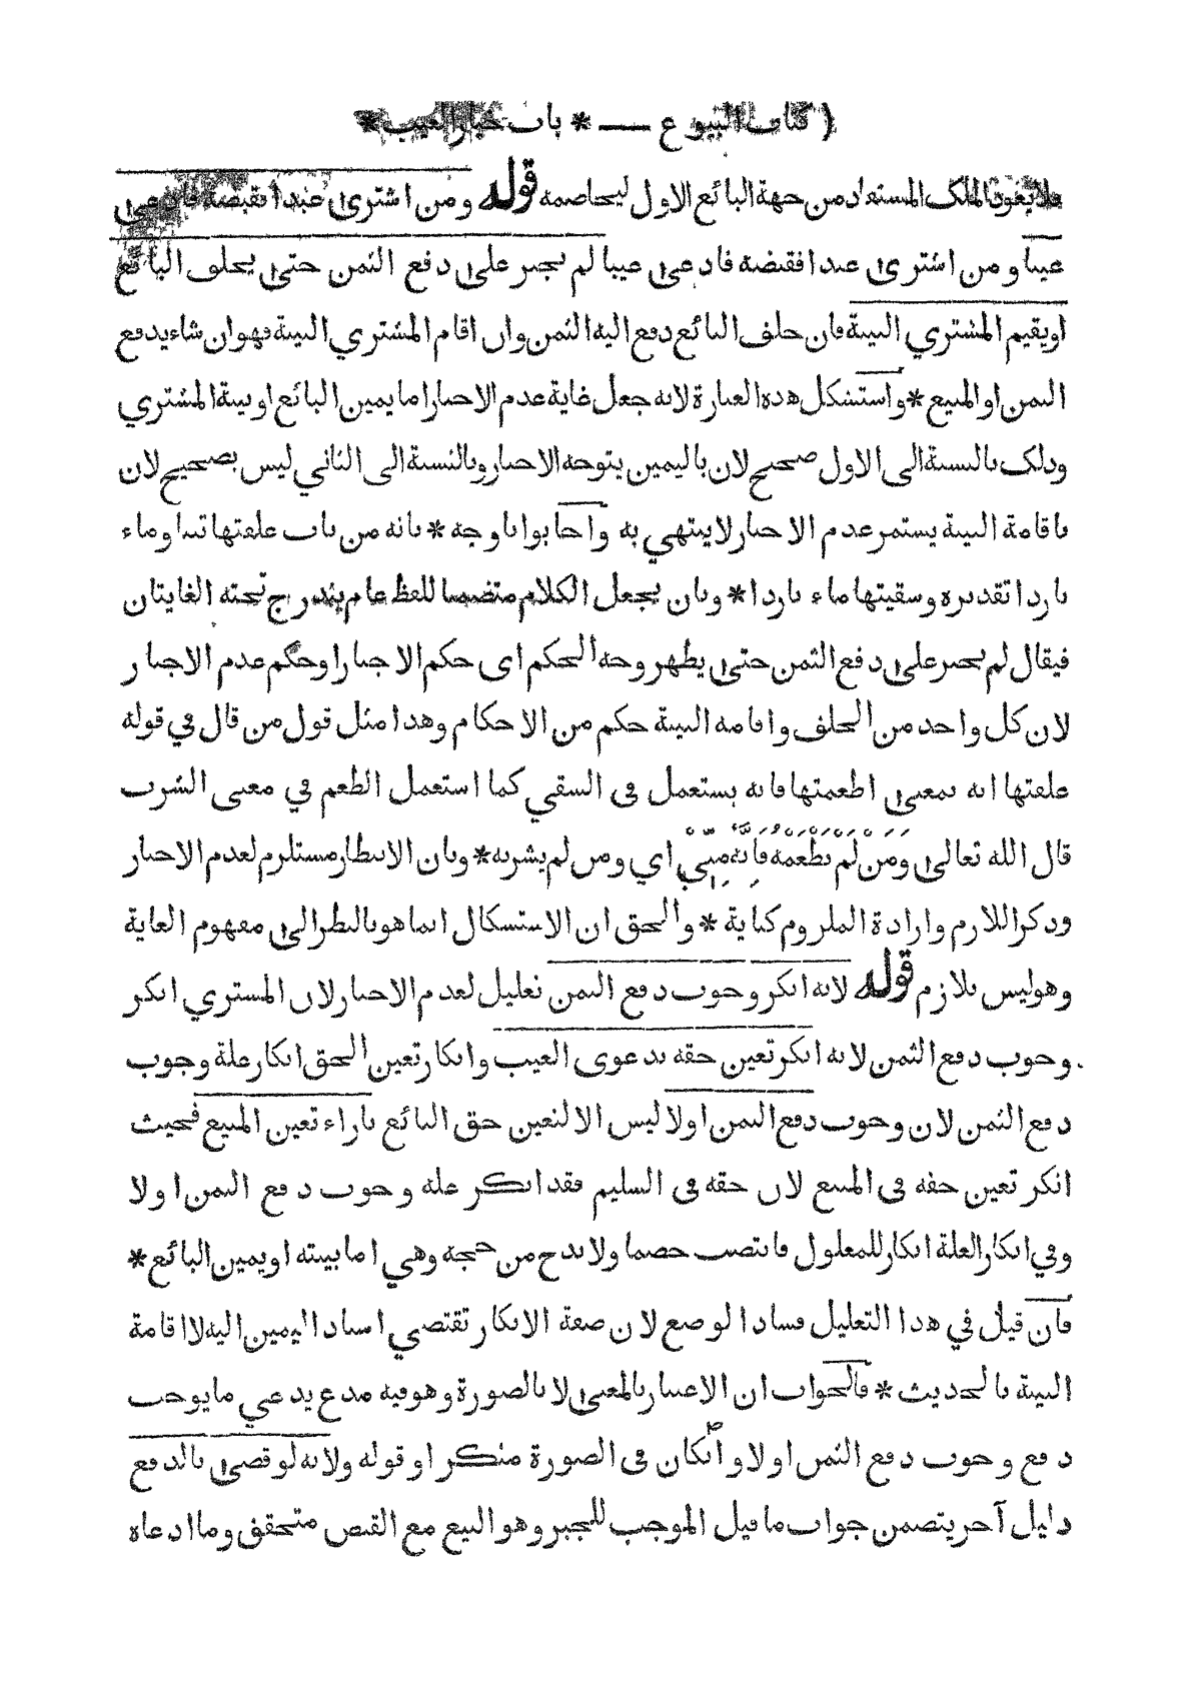 ( كتاب البيوع — * باب خيار العيب *
فلا يعود الملك المستفاد من جهة البائع الاول ليخاصمه قوله ومن اشترى عبدا فقبضه فادعى
عيبا ومن اشترى عبدا فقبضه فادعى عيبا لم يجبر على دفع الثمن حتى يحلف البائع
او يقيم المشتري البينة فان حلف البائع دفع اليه الثمن وان اقام المشتري البينة فهو ان شاء يدفع
الثمن او المبيع * واستشكل هذه العبارة لانه جعل غاية عدم الاجبار اما يمين البائع او بينة المشتري
وذلك بالنسبة الى الاول صحيح لان باليمين يتوجه الاجبار وبالنسبة الى الثاني ليس بصحيح لان
باقامة البينة يستمر عدم الاجبار لا ينتهي به واجابوا باوجه * بانه من باب علفتها تبنا وماء
باردا تقديره وسقيتها ماء باردا * وبان يجعل الكلام متضمنا للفظ عام يندرج تحته الغايتان
فيقال لم يجبر على دفع الثمن حتى يظهر وجه الحكم اى حكم الاجبار او حكم عدم الاجبار
لان كل واحد من الحلف واقامه البينة حكم من الاحكام وهذا مثل قول من قال في قوله
علفتها انه بمعنى اطعمتها فانه يستعمل فى السقي كما استعمل الطعم في معنى الشرب
قال الله تعالى وَمَنْ لَمْ يَطْعَمْهُ فَاِنَّهُ مِنِّيْ اي ومن لم يشربه * وبان الانتظار مستلزم لعدم الاجبار
وذكر اللازم وارادة الملزوم كناية * والحق ان الاستشكال انما هو بالنظر الى مفهوم الغاية
وهو ليس بلازم قوله لانه انكر وجوب دفع الثمن تعليل لعدم الاجبار لان المشتري انكر
وجوب دفع الثمن لانه انكر تعين حقه بدعوى العيب وانكار تعين الحق انكار علة وجوب
دفع الثمن لان وجوب دفع الثمن اولا ليس الا لتعين حق البائع باراء تعين المبيع فحيث
انكر تعين حقه فى المبيع لان حقه فى السليم فقد انكر عله وجوب دفع الثمن اولا
وفي انكار العلة انكار للمعلول فانتصب خصما ولا بد ح من حجه وهي اما بينته او يمين البائع *
فان قيل في هذا التعليل فساد الوضع لان صفة الانكار تقتضي اسناد اليمين اليه لا اقامة
البينة بالحديث * فالجواب ان الاعتبار بالمعنى لا بالصورة وهو فيه مدع يدعي ما يوجب
دفع وجوب دفع الثمن اولا وان كان فى الصورة منكرا وقوله ولانه لو قضى بالدفع
دليل آخر يتضمن جواب ما قيل الموجب للجبر وهو البيع مع القبض متحقق وما ادعاه